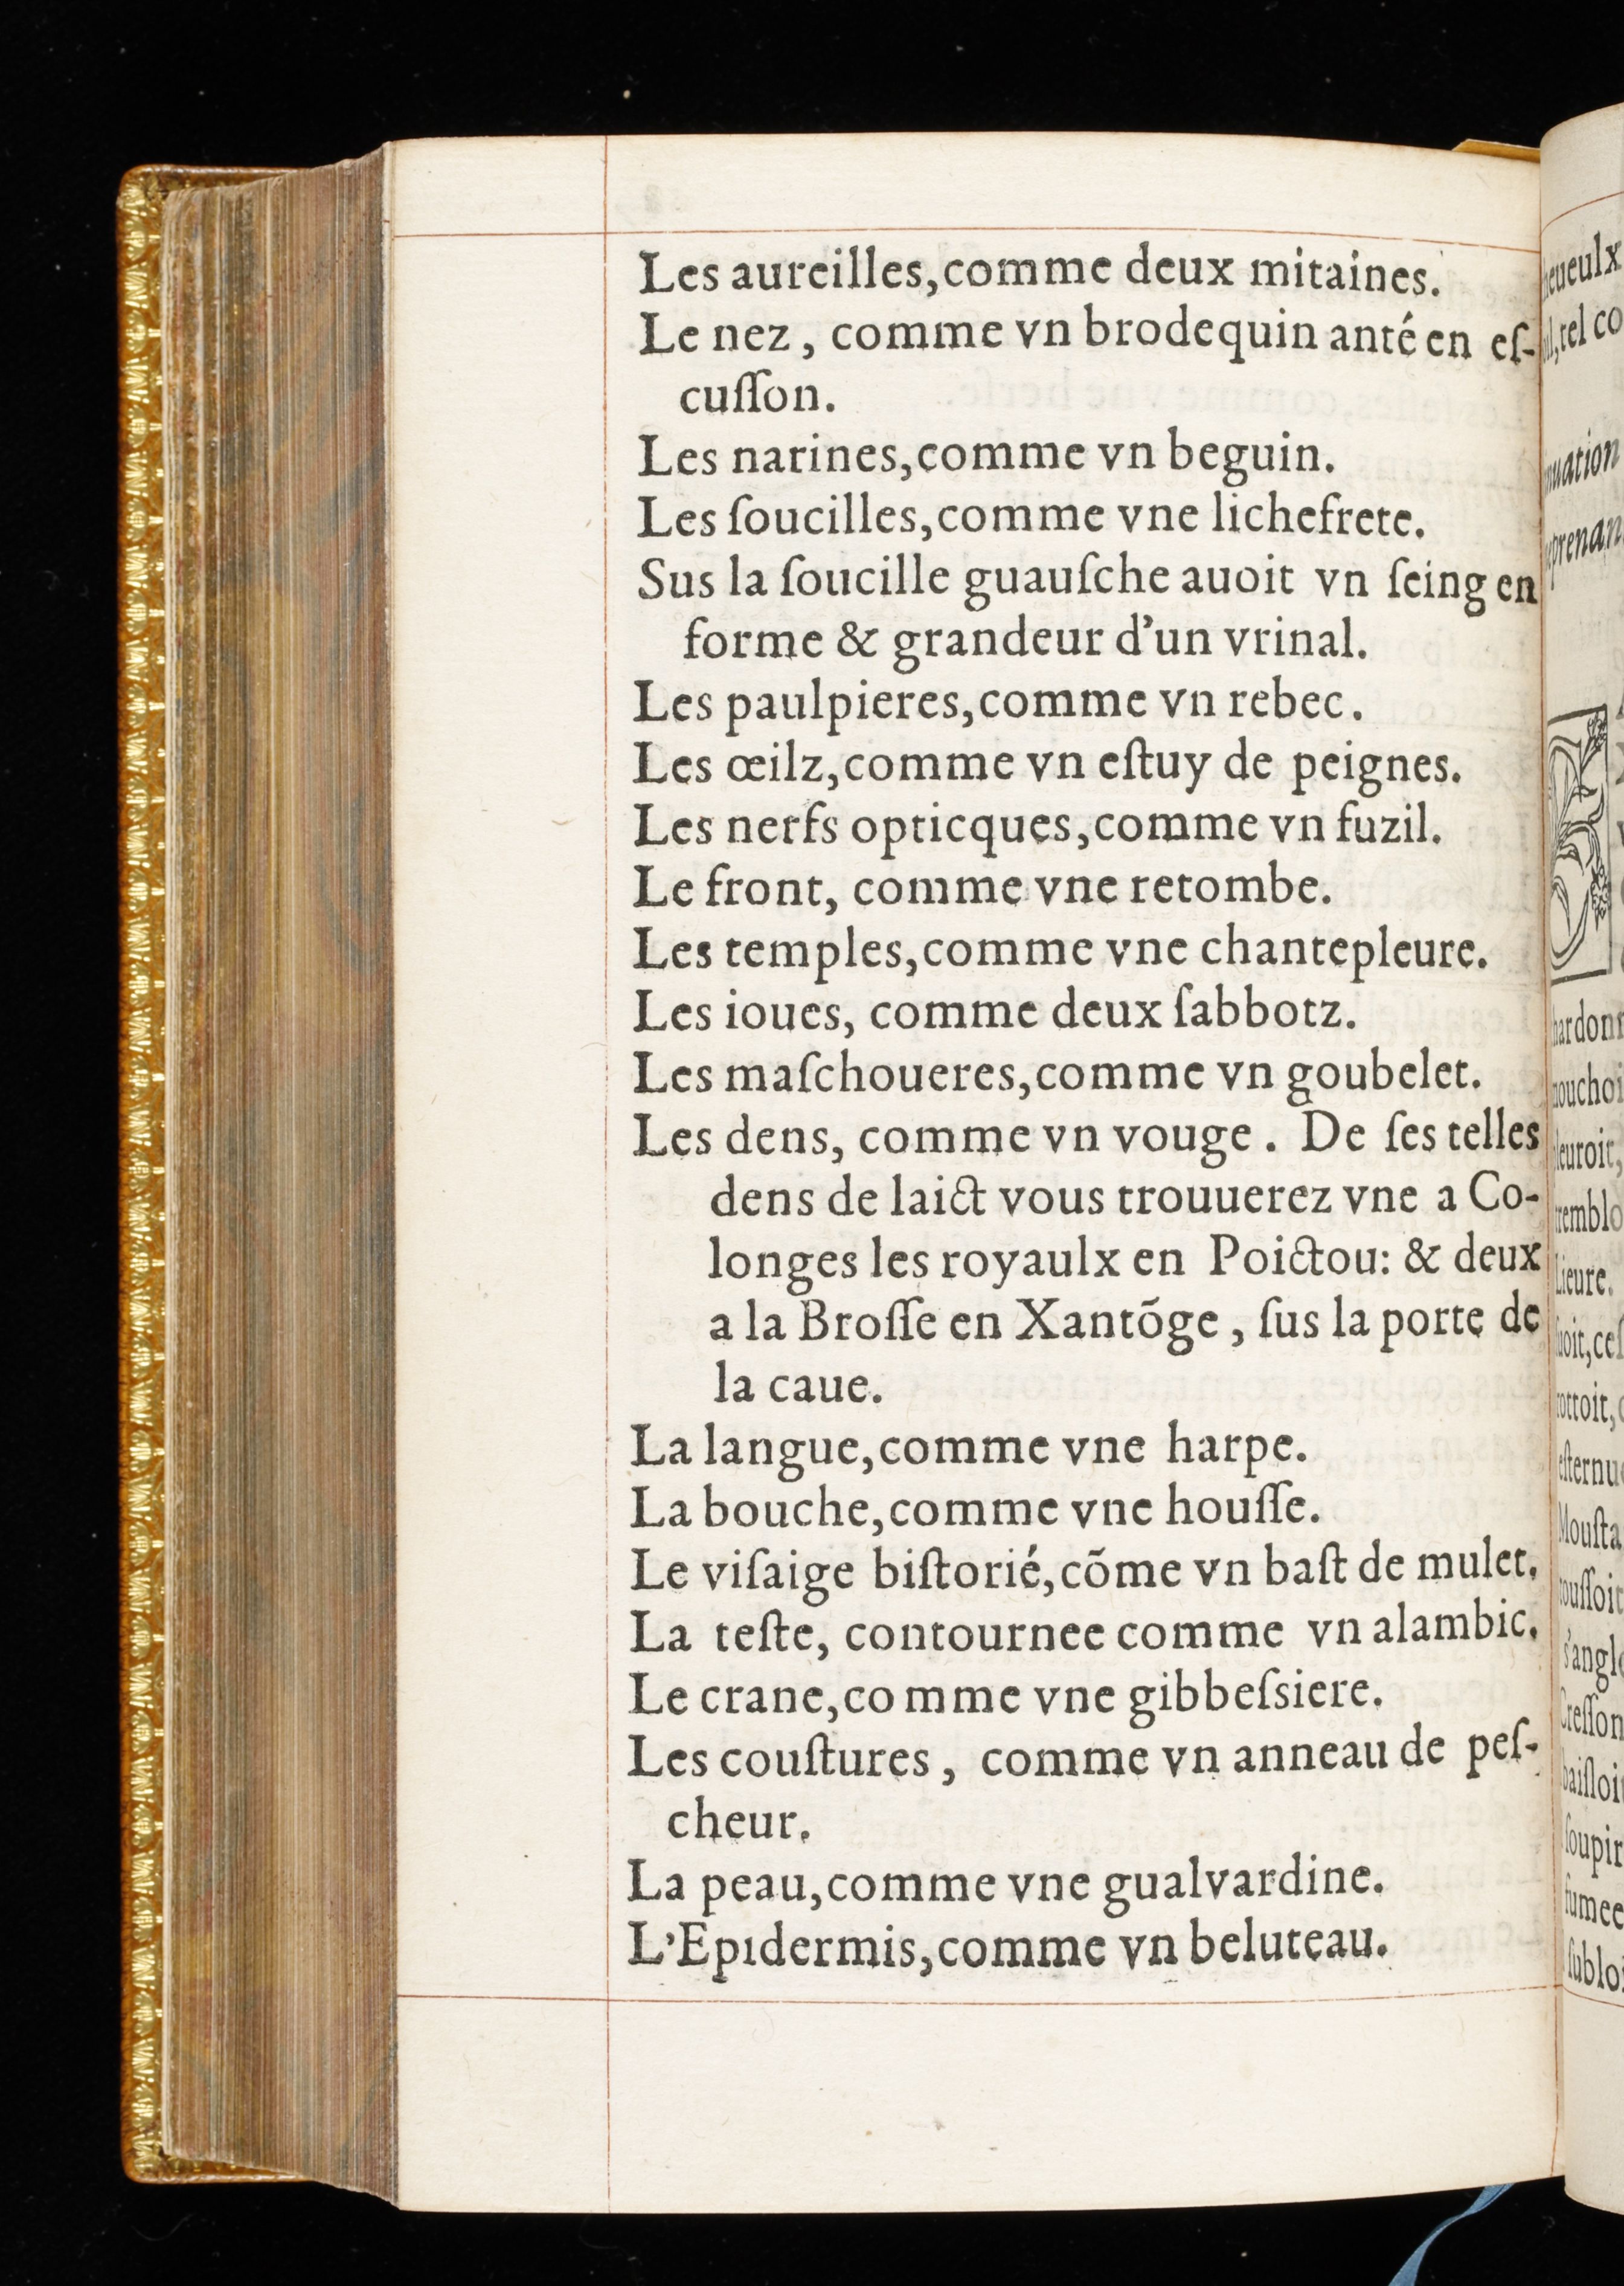 Les aureilles,comme deux mitaines.
Le nez, comme vn brodequin anté en eſ-
cuſſon.
Les narines,comme vn beguin.
Les ſoucilles,comme vne lichefrete.
Sus la ſoucille guauſche auoit vn ſeing en
forme & grandeur d'un vrinal.
Les paulpieres,comme vn rebec.
Les œilz,comme vn eſtuy de peignes.
Les nerfs opticques,comme vn fuzil.
Le front, comme vne retombe.
Les temples,comme vne chantepleure.
Les ioues, comme deux ſabbotz.
Les maſchoueres,comme vn goubelet.
Les dens, comme vn vouge. De ſes telles
dens de laict vous trouuerez vne a Co-
longes les royaulx en Poictou: & deux
a la Broſſe en Xantõge, ſus la porte de
la caue.
La langue,comme vne harpe.
La bouche,comme vne houſſe.
Le viſaige biſtorié,cõme vn baſt de mulet.
La teſte, contournee comme vn alambic.
Le crane,co mme vne gibbeſsiere.
Les couſtures, comme vn anneau de peſ-
cheur.
La peau,comme vne gualvardine.
L'Epıdermis,comme vn beluteau.